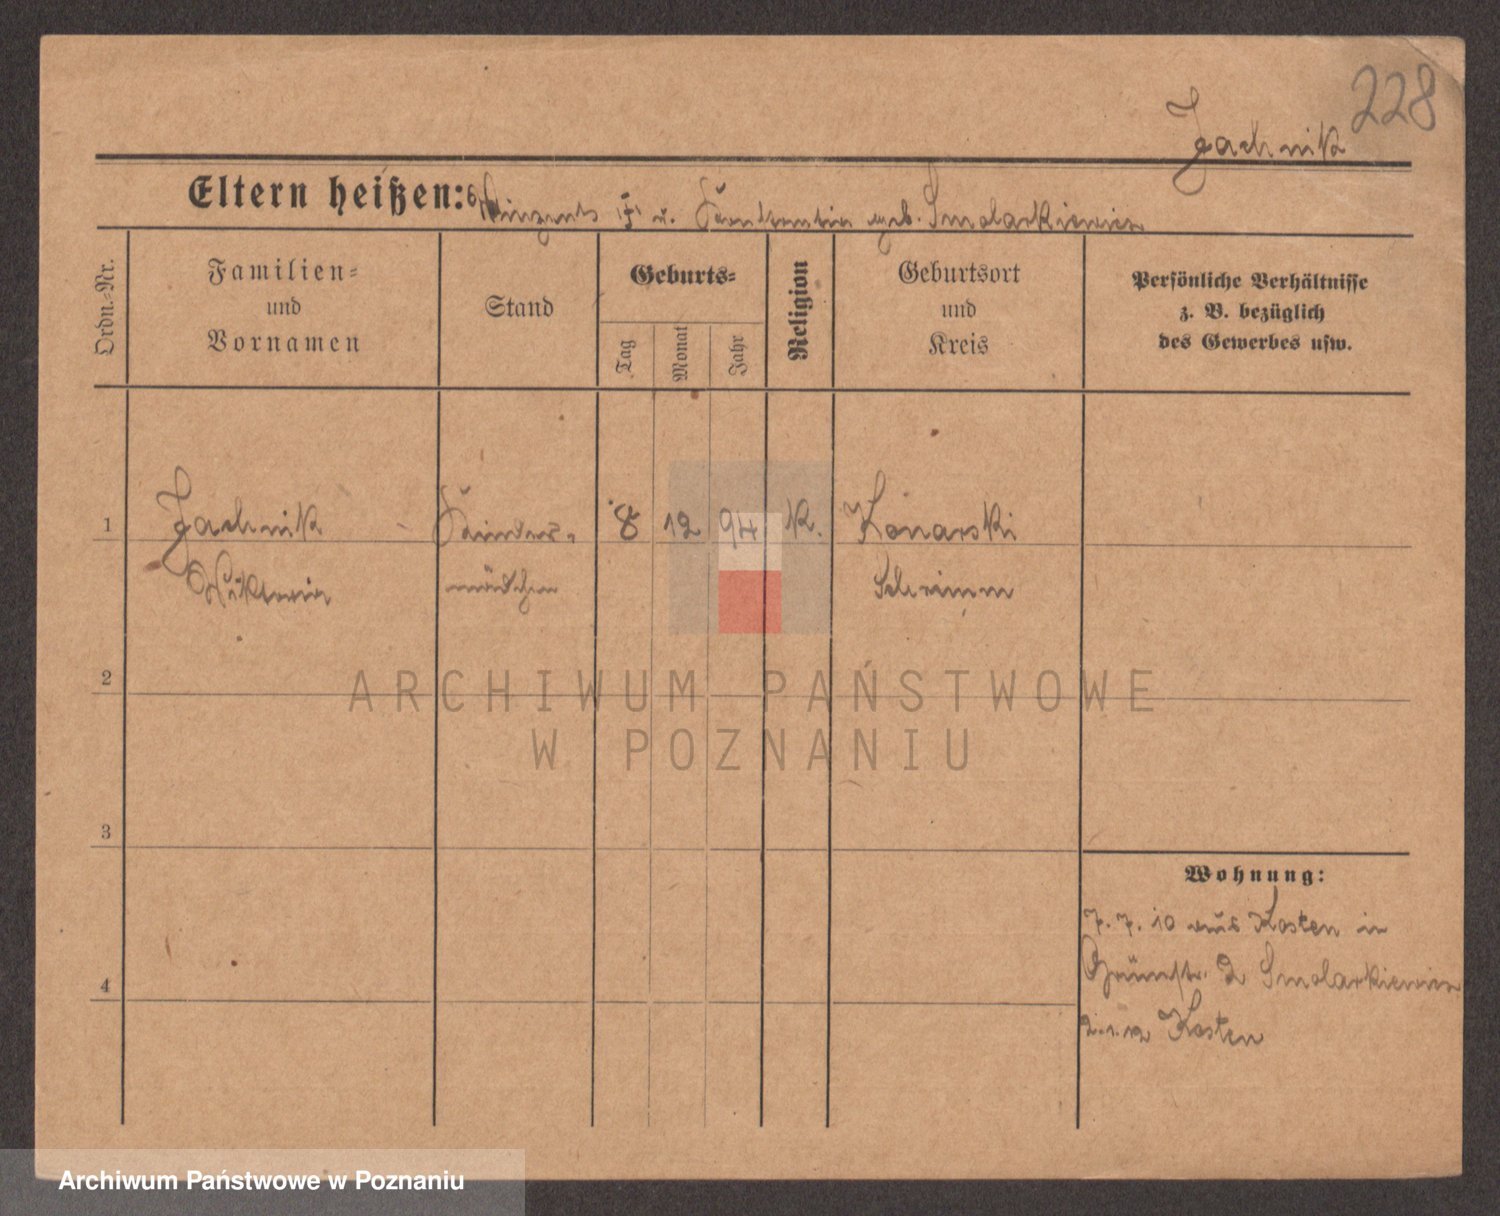 228
Jachnik
Eltern heißen: Vinzent u. Konstantia geb. Smolarkiewicz
Ordn.-Nr.
Familien-
und
Vornamen
Stand
Geburts-
Tag
Monat
Jahr
Religion
Geburtsort
und
Kreis
Persönliche Verhältnisse
z. B. bezüglich
des Gewerbes usw.
1
Jachnik
Kinder-
8
12
94
K.
Konarski
Wiktoria
mädchen
Schrimm
2
ARCHIWUM PAŃSTWOWE
W POZNANIU
3
Wohnung:
7.7.10 aus Kosten in
4
Grünstr. 2 Smolarkiewicz
2.1.12 Kosten
Archiwum Państwowe w Poznaniu